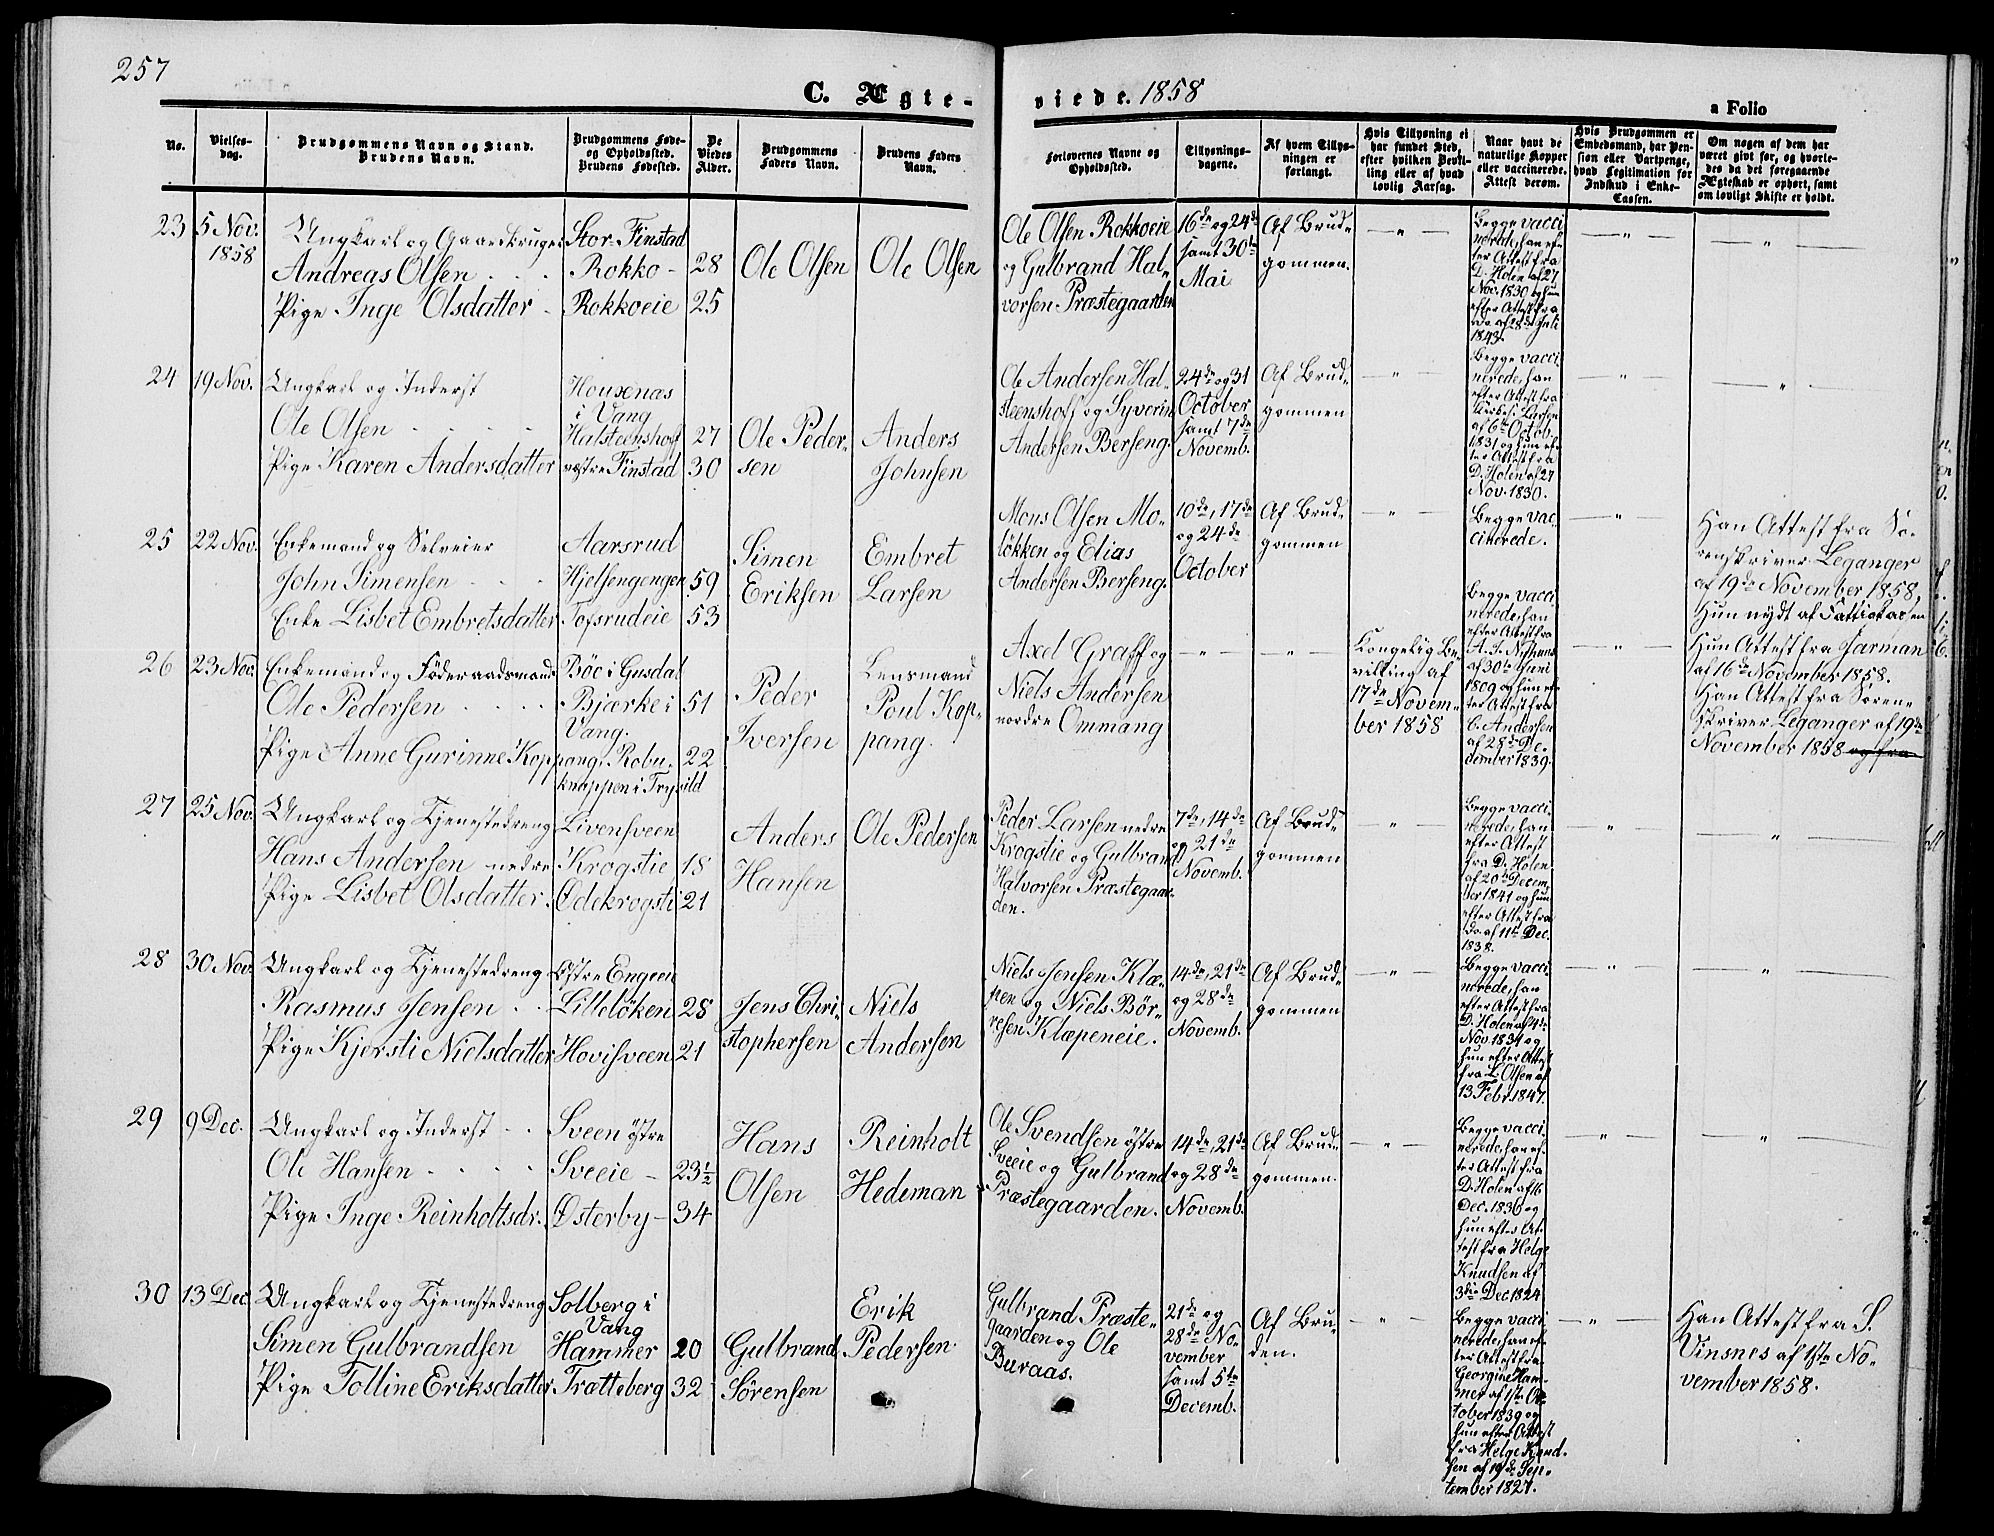 257
C. Ægte-
viede. 1858
a Folio
No.
Vielses-
dag.
Brudgommens Navn og Stand.
Brudens Navn.
Brudgommens Føde-
og Opholdssted.
Brudens Fødested.
De
Viedes
Alder.
Brudgommens
Faders Navn.
Brudens Faders
Navn.
Forlovernes Navne og
Opholdssted.
Tillysnings-
dagene.
Af hvem Tillys-
ningen er
forlangt.
Hvis Tillysning ei
har fundet Sted,
efter hvilken Bevil-
ling eller af hvad
lovlig Aarsag.
Naar havt de
naturlige Kopper
eller vaccinerede.
Attest derom.
Hvis Brudgommen er
Embedsmand, har Pen-
sion eller Vartpenge,
hvad Legitimation for
Indskud i Enke-
Cassen.
Om nogen af dem har
været gift før, og hvorle-
des da det foregaaende
Ægteskab er ophørt, samt
om lovligt Skifte er holdt.
23
5 Nov.
1858
Ungkarl og Gaardbruger
Andreas Olsen
Pige Inge Olsdatter
Stor-Finstad
Rokko - 28
Rokkoeie 25
Ole Olsen
Ole Olsen
Ole Olsen Rokkoeie
og Gulbrand Hal-
vorsen Præstegaarden
16de og 24de
samt 30te
Mai
Af Brud-
gommen.
Begge vacci
nerede, han ef-
ter Attest fra
D. Holen af 27
Nov. 1830 og hun
efter Attest fra
do. af 28de Juli
1843.
24
19 Nov.
Ungkarl og Inderst
Ole Olsen
Pige Karen Andersdatter
Housenas
i Vang
Halsteenshoff 27
vestre Finstad 30
Ole Peder-
sen
Anders
Johnsen
Ole Andersen Hal-
steenshoff og Syverin
Andersen Berseng.
24de og 31
October
samt 7de
Novemb.
Af Brud-
gommen
Begge vacci
nerede, han
efter Attest fra
Larsen
af 6te Octob.
1831 og hun ef-
ter Attest fra
D. Holen af 27
Nov. 1830.
25
22 Nov.
Enkemand og Selveier
John Simensen
Enke Lisbet Embretsdatter
Aarsrud
Hjelsengengen 59
Tofsrudeie 53
Simen
Eriksen
Embret
Larsen
Mons Olsen Mo-
løkken og Elias
Andersen Berseng.
10de, 17de
og 24de
October
Af Brud-
gommen
Begge vac-
cinerede.
Han Attest fra So-
renskriver Leganger
af 19de November 1858,
Hun nydt af Fattickassen
26
23 Nov.
Enkemand og Føderaadsmand
Ole Pedersen
Pige Anne Gurinne Koppang.
Böe i Gusdal
Bjærke i 51
Vang.
Robu- 22
knappen i Trysild
Peder
Iversen
Lensmand
Poul Kop-
pang.
Axel Graff og
Niels Andersen
nordre Ommang
Kongelig Be-
villing af
17de Novem-
ber 1858
Begge vacci
nerede, han
efter Attest fra
af 30te Juni
1809 og hun ef-
ter Attest fra
C. Andersen
af 28de De-
cember 1839.
Hun Attest fra Jarman
af 16de November 1858.
Han Attest fra Soren-
skriver Leganger af 19de
November 1858 og fra
27
25 Nov.
Ungkarl og Tjenestedreng
Hans Andersen
Pige Lisbet Olsdatter.
Livensveen
nedre Krogstie 18
Ødekrogsti 21
Anders
Hansen
Ole Pedersen
Peder Larsen nedre
Krogstie og Gulbrand
Halvorsen Præstegaar-
den.
7de, 14de
og 21de
Novemb.
Af Brud-
gommen
Begge vacci-
nerede, han
efter Attest
fra D. Holen
af 20de Decem-
ber 1841 og hun
efter Attest fra
do. af 11te Dec.
1838.
28
30 Nov.
Ungkarl og Tjenestedreng
Rasmus Jensen
Pige Kjersti Nielsdatter
Østre Engeen
Lilleløken 28
Hovisveen 21
Jens Chri-
stophersen
Niels
Andersen
Niels Jensen Klæ-
pen og Niels Bör-
resen Klæpeneie.
14de, 21de
og 28de
Novemb.
Af Brud-
gommen
Begge vacci
nerede, han
efter Attest fra
D. Holen af 4de
Nov 1834 og
hun efter Attest
fra L. Olsen af
13 Febr. 1847.
29
9 Dec.
Ungkarl og Inderst
Ole Hansen
Pige Inge Reinholtsdr.
Sveen østre
Sveeie - 23½
Østerby - 34
Hans
Olsen
Reinholt
Hedeman
Ole Svendsen østre
Sveeie og Gulbrand
Præstegaarden.
14de, 21de
og 28de
Novemb.
Af Brud-
gommen.
Begge vacci
nerede, han ef-
ter Attest fra
D. Holen af 16
Dec. 1836 og
hun efter At-
test fra Helge
Knudsen af
3die Dec 1824
30
13 Dec
Ungkarl og Tjenestedreng
Simen Gulbrandsen
Pige Tolline Eriksdatter
Solberg i
Vang
Hammer 20
Trætteberg 32
Gulbrand
Sörensen
Erik
Pedersen.
Gulbrand Præste-
gaarden og Ole
Buraas.
21de og
28de No-
vember
samt 5te
Decemb.
Af Bru-
den.
Begge vacci
nerede, han ef-
ter Attest fra
Georgine Ham-
mer af 1ste Oc-
tober 1839 og
hun efter Attest
fra Helge Knud-
sen af 19de Sep-
tember 1827.
Han Attest fra S.
Vinsnes af 1ste No-
vember 1858.